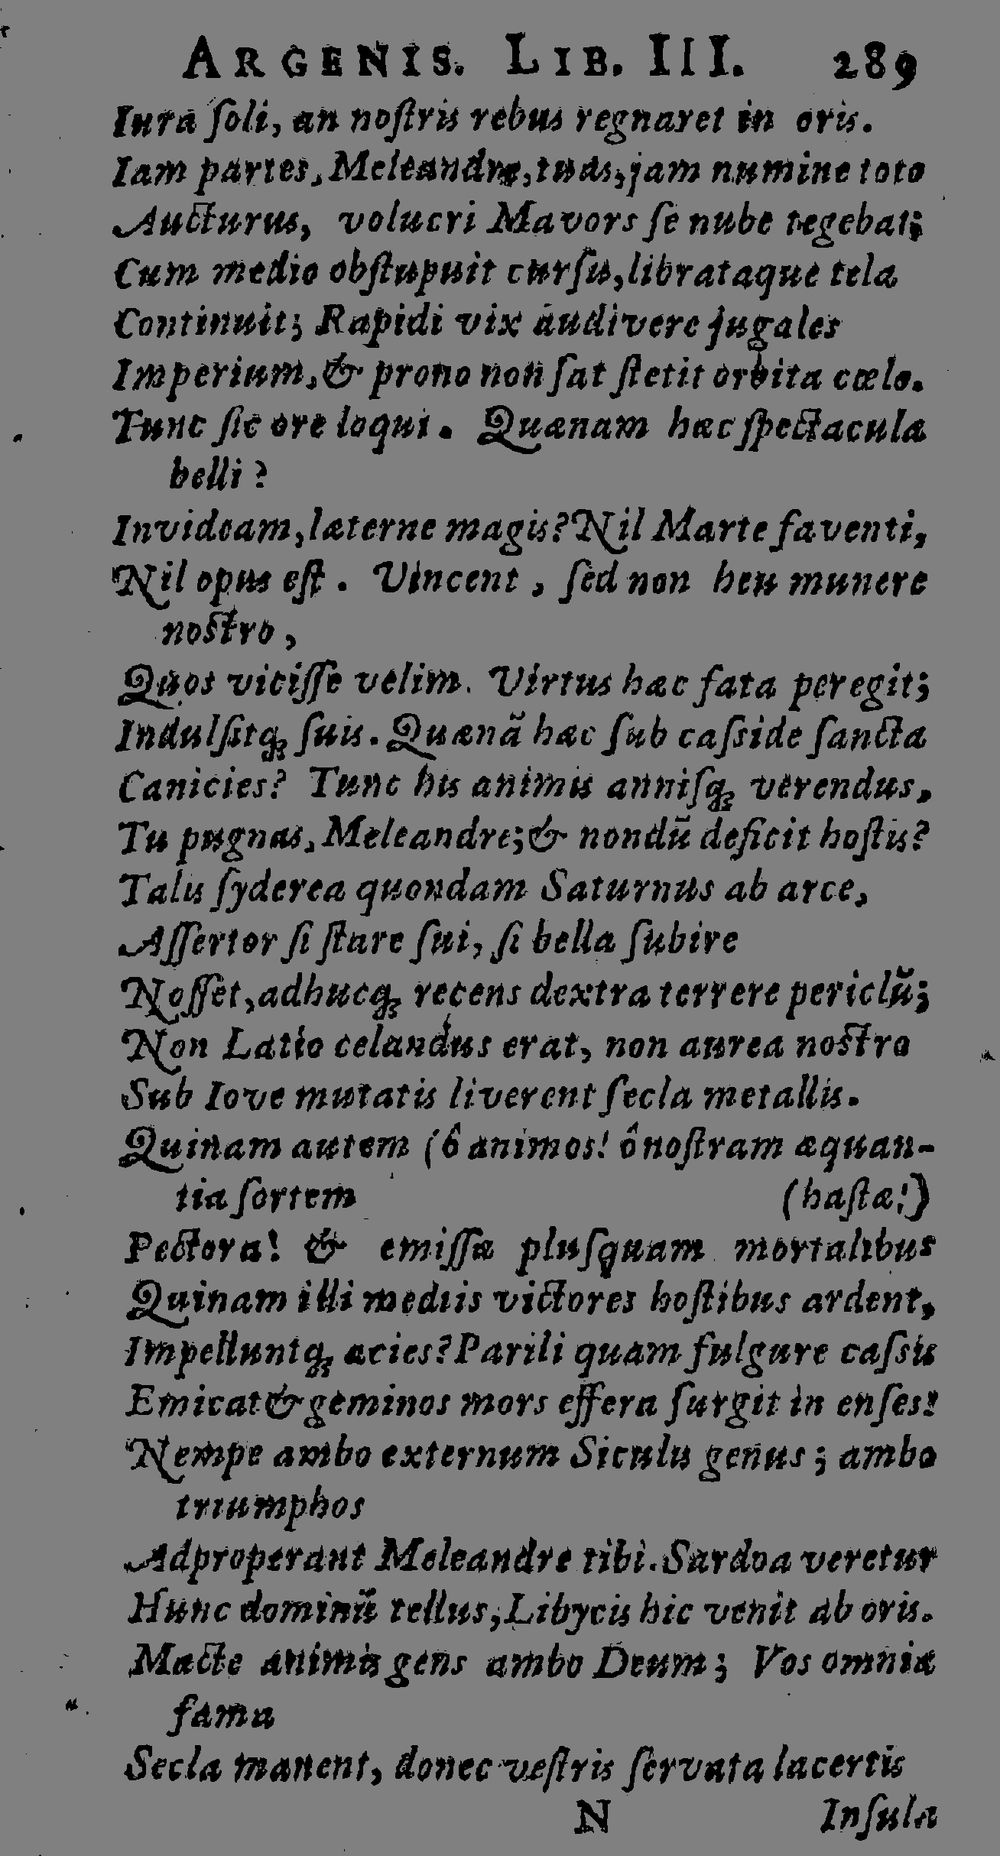 ARGENIS. LIB. III. 289
Iura ſoli, an noſtris rebus regnaret in oris.
Iam partes, Meleandre, tuas, jam numine toto
Aucturus, volucri Mavors ſe nube tegebat;
Cum medio obſtupuit curſu, librataque tela
Continuit; Rapidi vix audivere jugales
Imperium, & prono non ſat ſtetit orbita cœlo.
Tunc ſic ore loqui. Quænam hæc ſpectacula
belli?
Invideam, læterne magis? Nil Marte faventi,
Nil opus eſt. Vincent, ſed non heu munere
noſtro,
Quos viciſſe velim. Virtus hæc fata peregit;
Indulſitq; ſuis. Quænã hæc ſub caſside ſancta
Canicies? Tunc his animis anniſq; verendus,
Tu pugnas, Meleandre; & nondũ deficit hoſtis?
Talis ſyderea quondam Saturnus ab arce,
Aſſertor ſi ſtare ſui, ſi bella ſubire
Noſſet, adhucq; recens dextra terrere periclũ;
Non Latio celandus erat, non aurea noſtro
Sub Iove mutatis liverent ſecla metallis.
Quinam autem (ô animos! ô noſtram æquan-
tia ſortem (haſtæ!)
Pectora! & emiſſæ pluſquam mortalibus
Quinam illi mediis victores hoſtibus ardent,
Impelluntq; acies? Parili quam fulgure caſsis
Emicat & geminos mors effera ſurgit in enſes!
Nempe ambo externum Siculis genus; ambo
triumphos
Adproperant Meleandre tibi. Sardoa veretur
Hunc dominũ tellus, Libycis hic venit ab oris.
Macte animis gens ambo Deum; Vos omnia
fama
Secla manent, donec veſtris ſervata lacertis
N Inſula